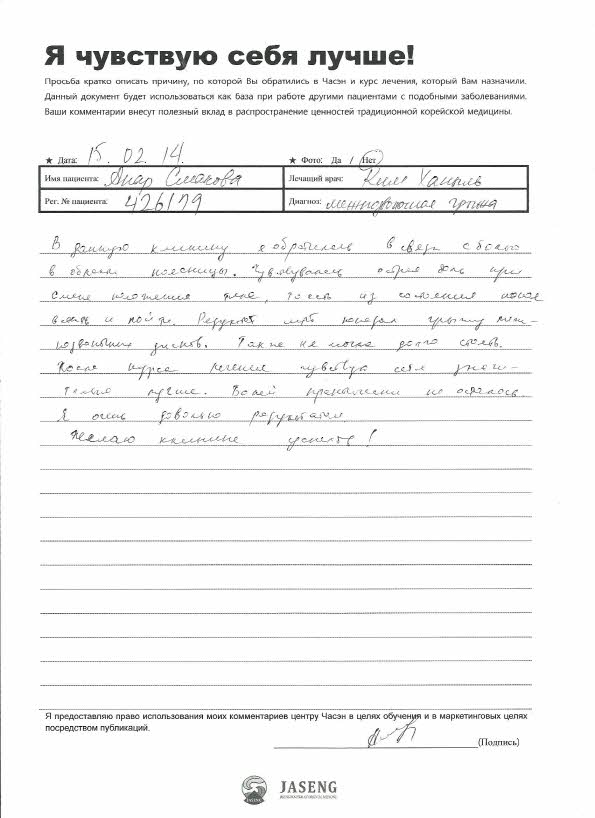 Я чувствую себя лучше!
Просьба кратко описать причину, по которой Вы обратились в Часэн и курс лечения, который Вам назначили.
Данный документ будет использоваться как база при работе другими пациентами с подобными заболеваниями.
Ваши комментарии внесут полезный вклад в распространение ценностей традиционной корейской медицины.
★ Дата: 15. 02. 14. ★ Фото: Да / Нет
Имя пациента: Анар Смакова Лечащий врач: Ким Ханыль
Рег. № пациента: 426179 Диагноз: грыжа
В данную клинику я обратилась в связи с болью
в области поясницы. острая боль при
смене положения тела, то есть из состояния
встать и пойти. Результат МРТ показал грыжу меж-
позвонковых дисков. Также не могла долго стоять.
После курса лечения чувствую себя значи-
тельно лучше. Болей практически не осталось.
Я очень довольна результатом.
Желаю клинике успехов!
Я предоставляю право использования моих комментариев центру Часэн в целях обучения и в маркетинговых целях
посредством публикаций.
(Подпись)
JASENG